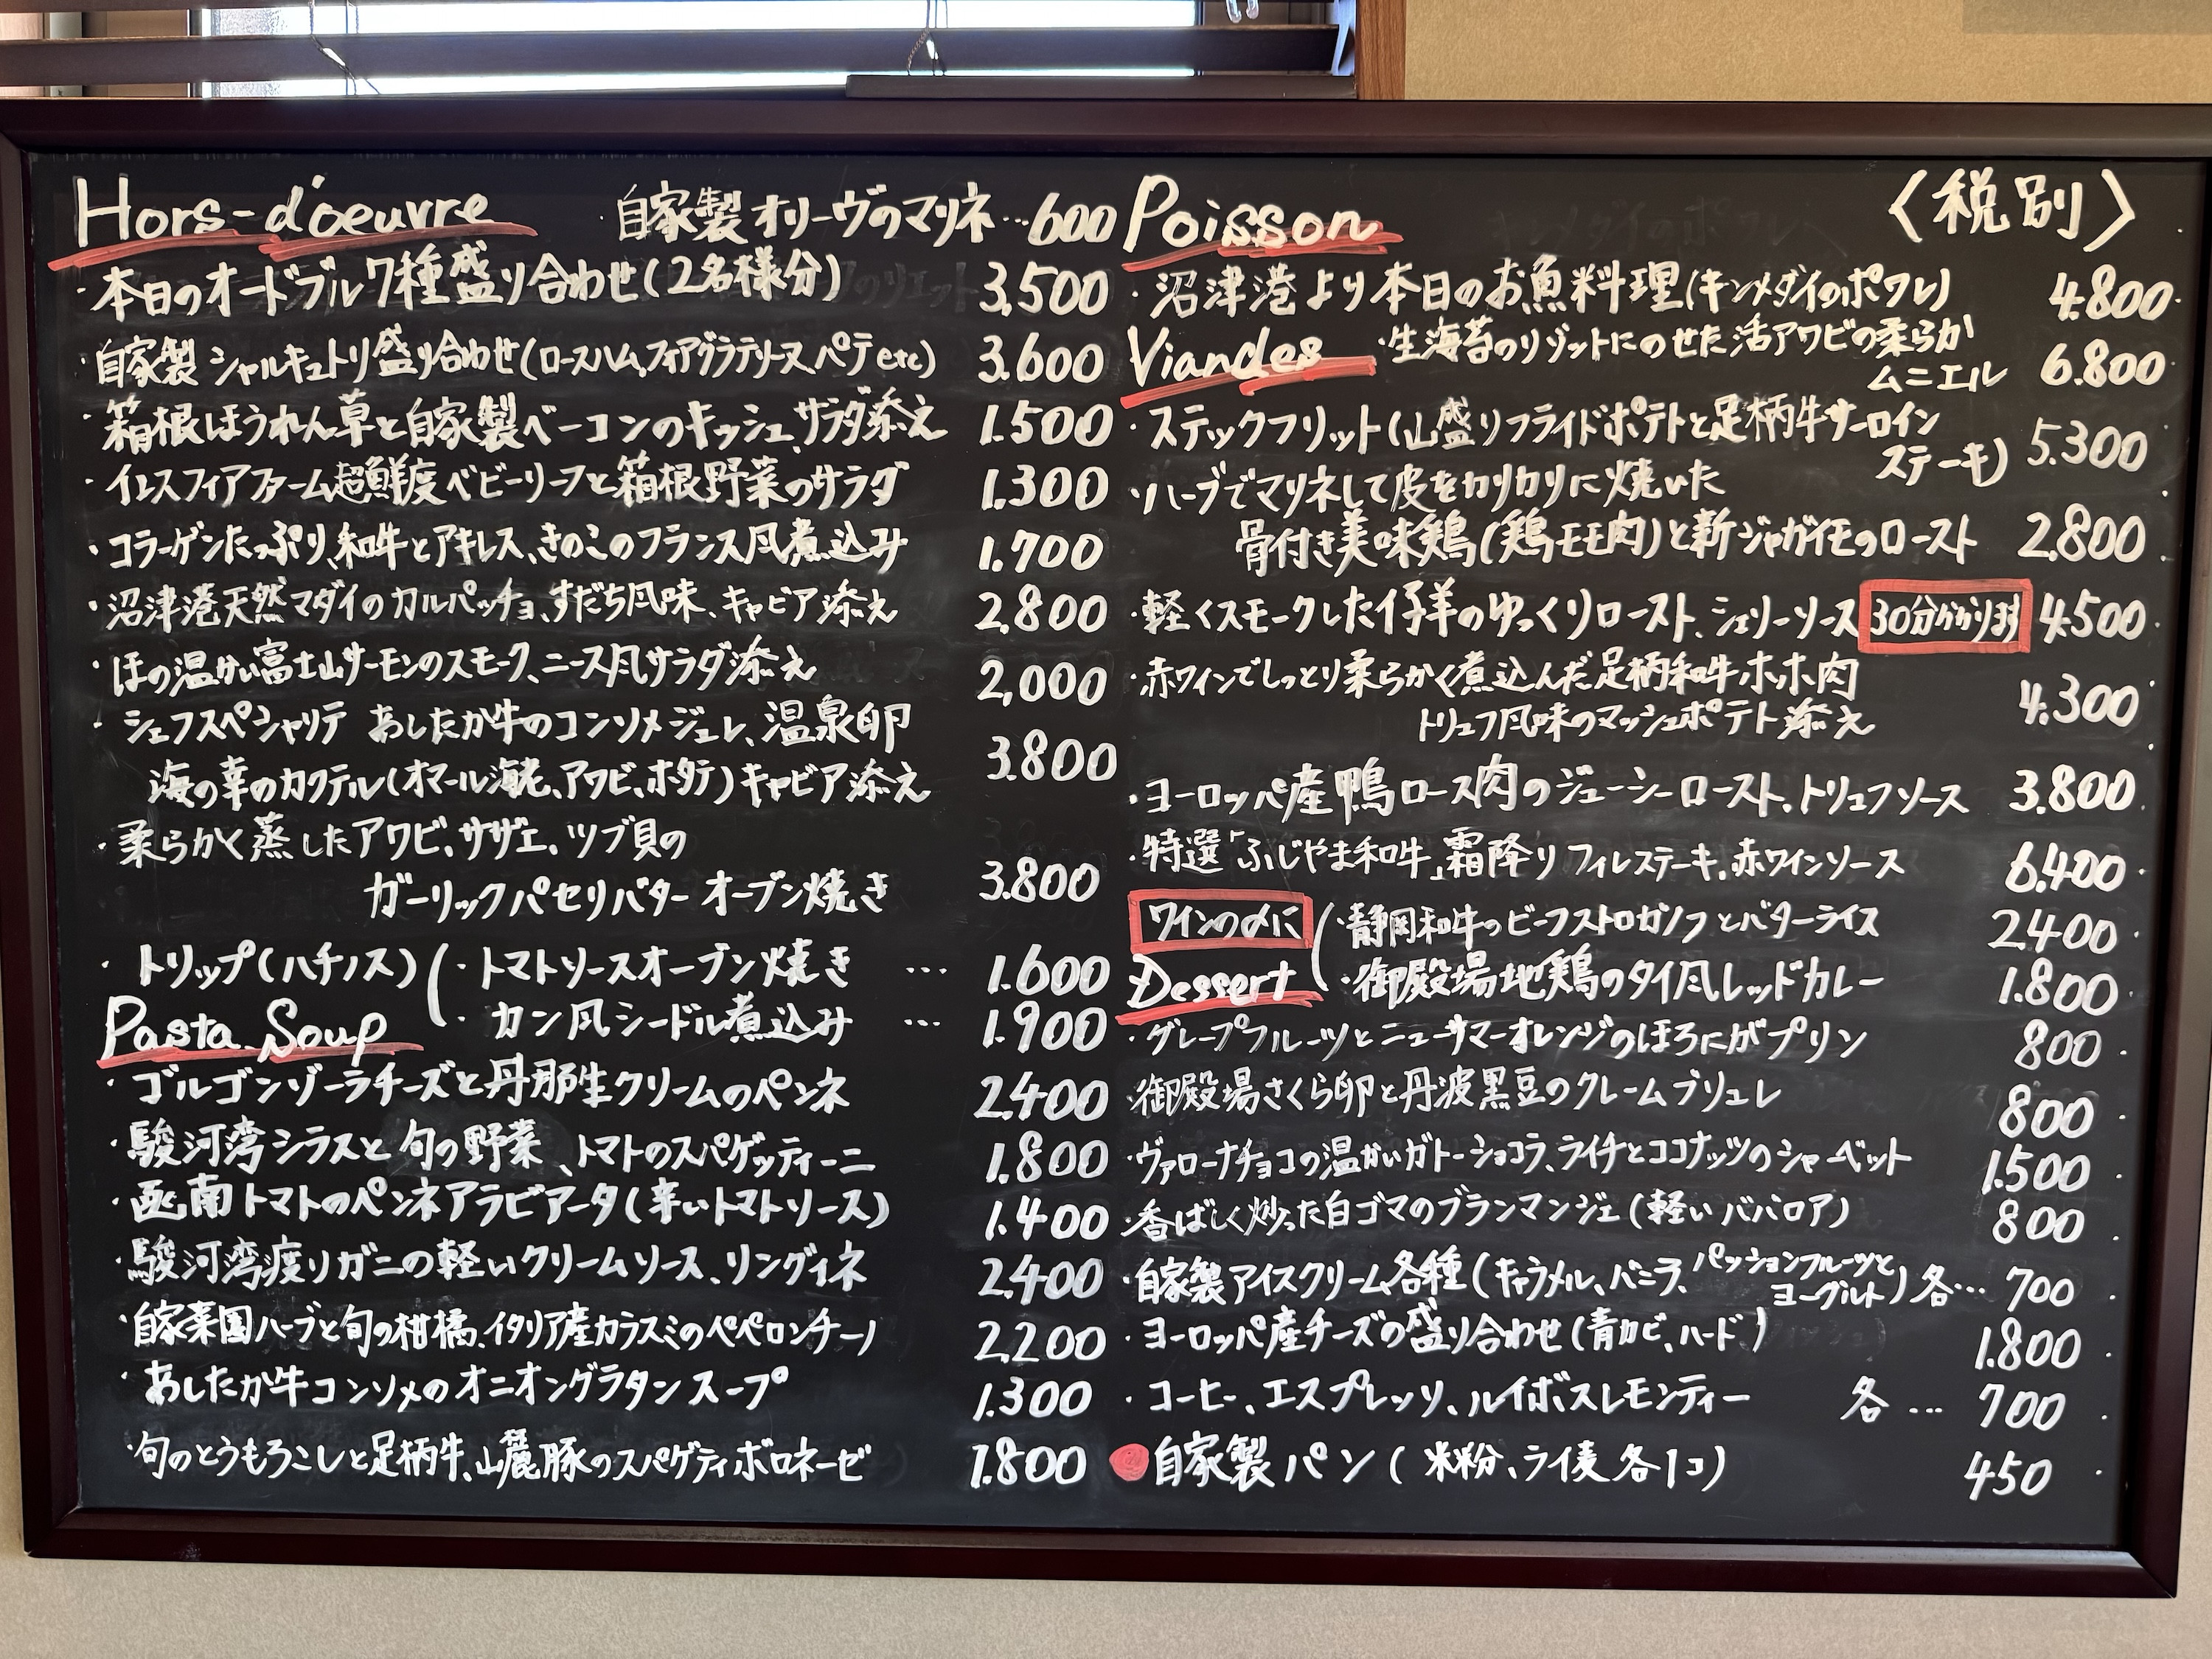 Hors-d'oeuvre
・自家製オリーヴのマリネ…600
・本日のオードブル7種盛り合わせ(2名様分) 3,500
・自家製シャルキュトリ盛り合わせ(ロースハム、フォアグラテリーヌ、パテetc) 3.600
・箱根ほうれん草と自家製ベーコンのキッシュ、サラダ添え 1.500
・イレスフィアファーム超鮮度ベビーリーフと箱根野菜のサラダ 1.300
・コラーゲンたっぷり、和牛とアキレス、きのこのフランス風煮込み 1.700
・沼津港天然マダイのカルパッチョ、すだち風味、キャビア添え 2,800
・ほの温かい富士山サーモンのスモーク、ニース風サラダ添え 2,000
・シェフスペシャリテ あしたか牛のコンソメジュレ、温泉卵
海の幸のカクテル(オマール海老、アワビ、ホタテ)キャビア添え 3.800
・柔らかく蒸したアワビ、サザエ、ツブ貝の
ガーリックパセリバター オーブン焼き 3.800
・トリップ(ハチノス)(・トマトソースオーブン焼き … 1.600
・カン風シードル煮込み … 1.900
Pasta. Soup
・ゴルゴンゾーラチーズと丹那生クリームのペンネ 2.400
・駿河湾シラスと旬の野菜、トマトのスパゲッティーニ 1.800
・函南トマトのペンネアラビアータ(辛いトマトソース) 1.400
・駿河湾渡りガニの軽いクリームソース、リングイネ 2.400
・自家菜園ハーブと旬の柑橘、イタリア産カラスミのペペロンチーノ 2,200
・あしたか牛コンソメのオニオングラタンスープ 1.300
・旬のとうもろこしと足柄牛、山麓豚のスパゲティボロネーゼ 1.800
Poisson
〈税別〉
・沼津港より本日のお魚料理(キンメダイのポワレ) 4.800
・生海苔のリゾットにのせた活アワビの柔らか
ムニエル 6.800
Viandes
・ステックフリット(山盛りフライドポテトと足柄牛サーロイン
ステーキ) 5.300
・ハーブでマリネして皮をカリカリに焼いた
骨付き美味鶏(鶏モモ肉)と新ジャガイモのロースト 2.800
・軽くスモークした仔羊のゆっくりロースト、シェリーソース 30分かかります 4.500
・赤ワインでしっとり柔らかく煮込んだ足柄和牛ホホ肉
トリュフ風味のマッシュポテト添え 4.300
・ヨーロッパ産鴨ロース肉のジューシーロースト、トリュフソース 3.800
・特選「ふじやま和牛」霜降りフィレステーキ、赤ワインソース 6.400
ワインの〆に(・静岡和牛のビーフストロガノフとバターライス 2400
・御殿場地鶏のタイ風レッドカレー 1.800
Dessert
・グレープフルーツとニューサマーオレンジのほろにがプリン 800
・御殿場さくら卵と丹波黒豆のクレームブリュレ 800
・ヴァローナチョコの温かいガトーショコラ、ライチとココナッツのシャーベット 1.500
・香ばしく炒った白ゴマのブランマンジェ(軽いババロア) 800
・自家製アイスクリーム各種(キャラメル、バニラ、パッションフルーツと
ヨーグルト)各… 700
・ヨーロッパ産チーズの盛り合わせ(青カビ、ハード) 1.800
・コーヒー、エスプレッソ、ルイボスレモンティー 各… 700
自家製パン(米粉、ライ麦各1コ) 450